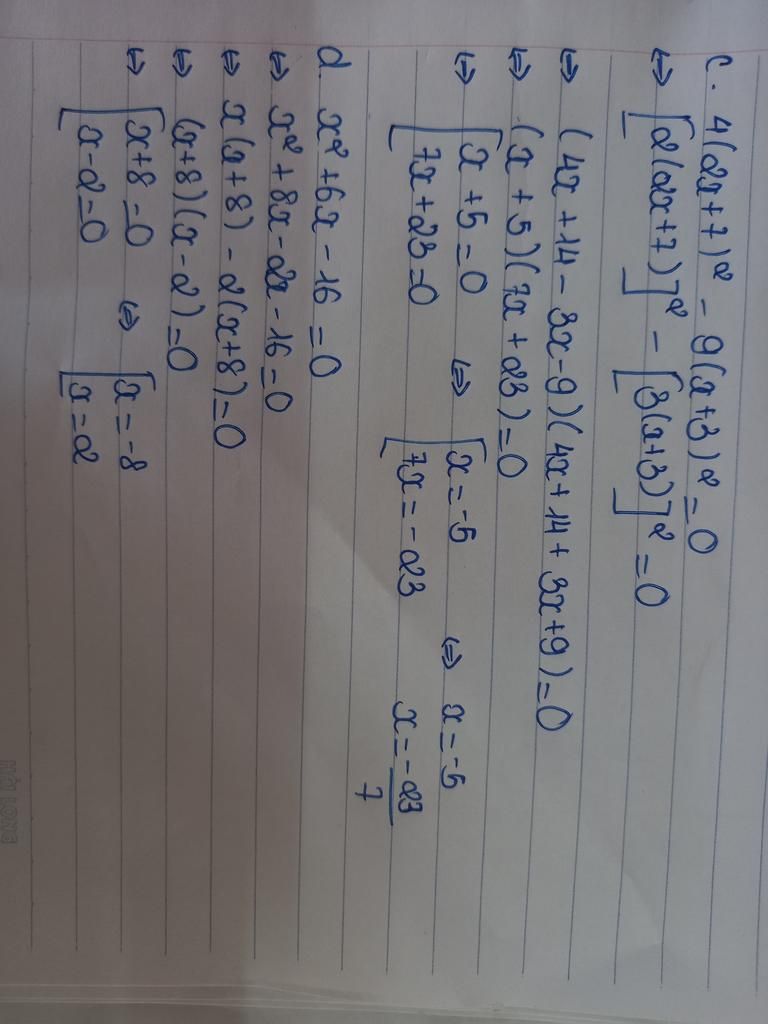 c. 4(2x+7)² - 9(x+3)² = 0
⇔ [2(2x+7)]² - [3(x+3)]² = 0
⇔ (4x+14-3x-9)(4x+14+3x+9)=0
⇔ (x+5)(7x+23)=0
⇔ [x+5=0 ⇔ [x=-5 ⇔ x=-5
[7x+23=0 [7x=-23 x=-23/7
d. x²+6x-16=0
⇔ x²+8x-2x-16=0
⇔ x(x+8)-2(x+8)=0
⇔ (x+8)(x-2)=0
⇔ [x+8=0 ⇔ [x=-8
[x-2=0 [x=2
HẢI LONG